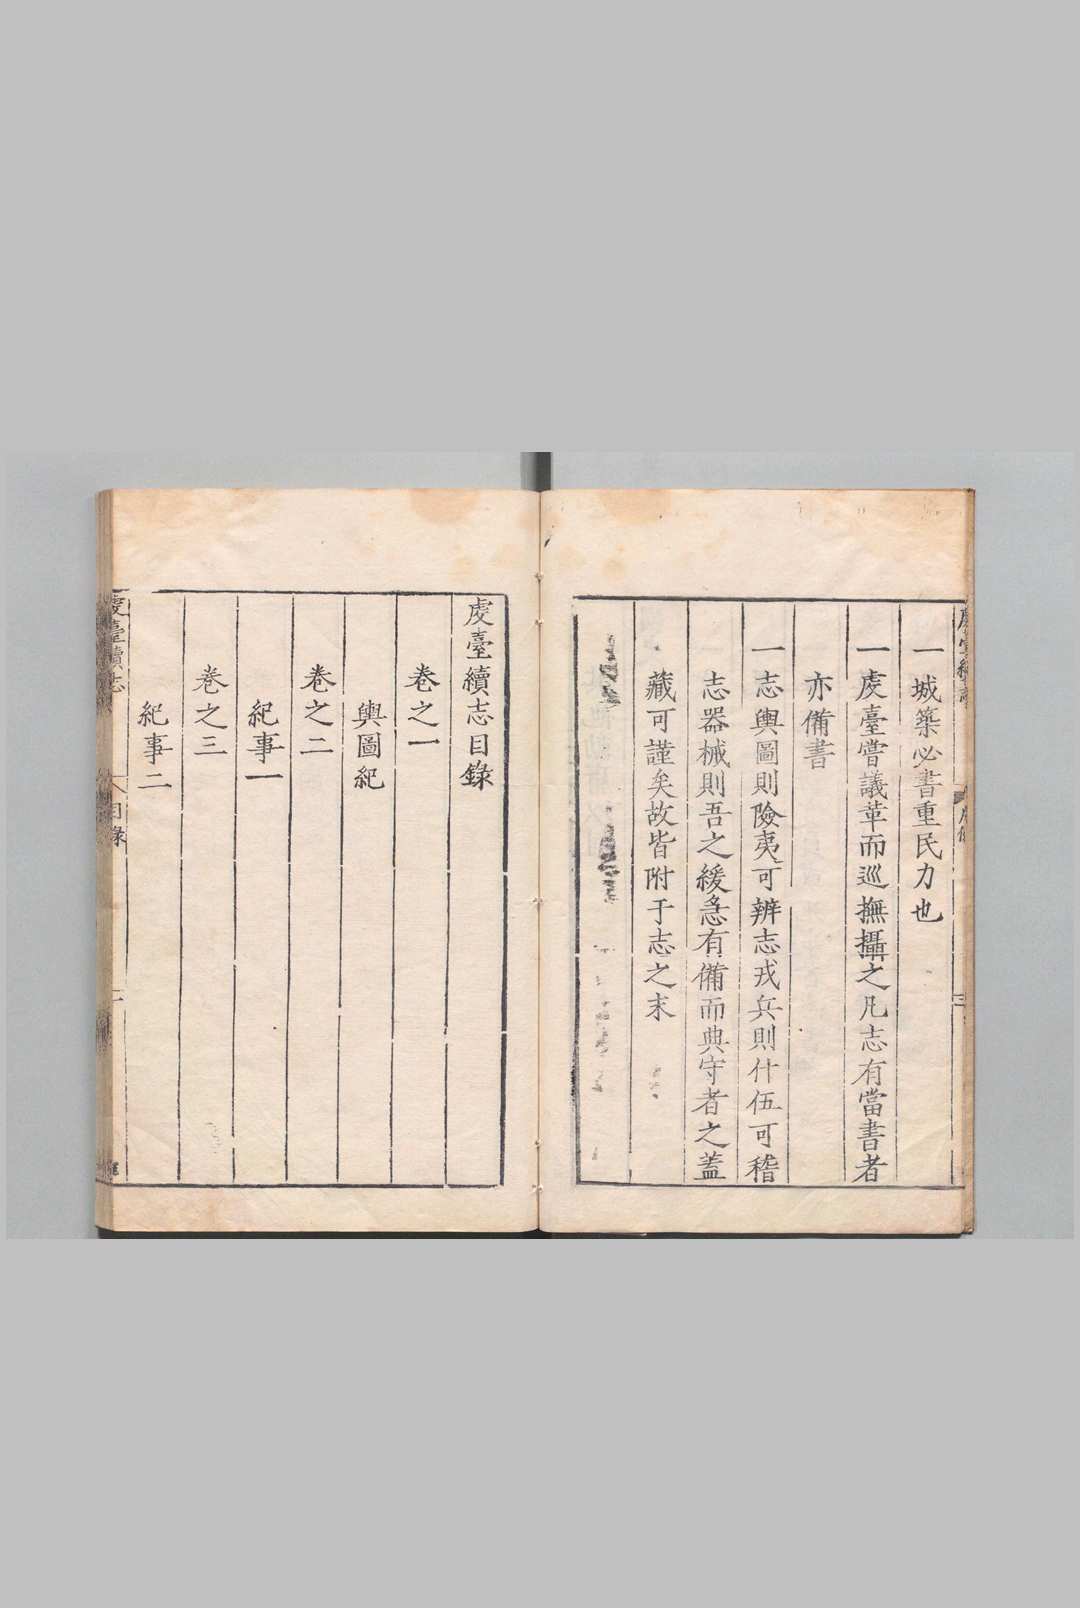 一城築必書重民力也
一虔臺嘗議革而巡撫攝之凡志有當書者
亦備書
一志輿圖則險夷可辨志戎兵則什伍可稽
志器械則吾之緩急有備而典守者之蓋
藏可謹矣故皆附于志之末
虔臺續志目錄
卷之一
輿圖紀
卷之二
紀事一
卷之三
紀事二
虔臺續志
目錄